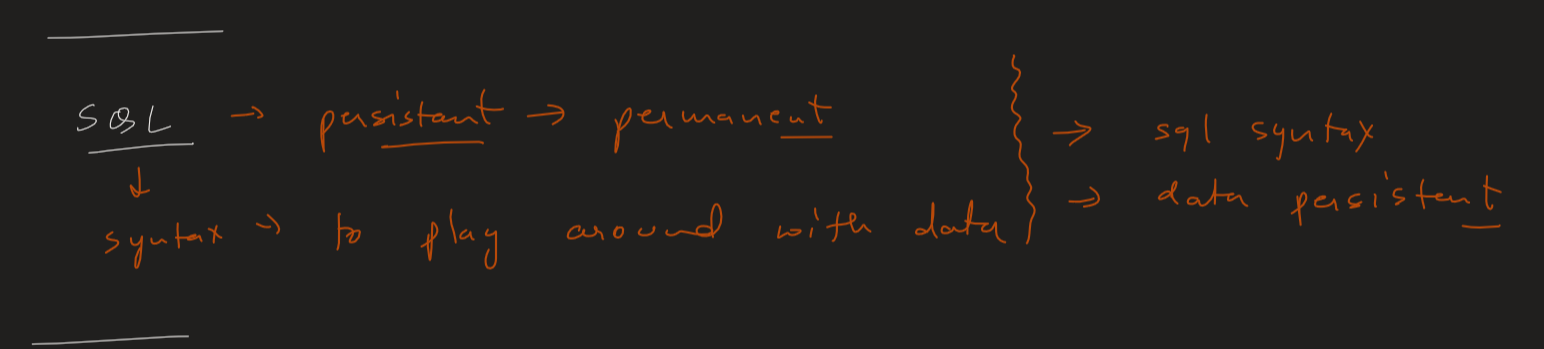 SQL → persistant → permanent
↓
syntax → to play around with data
→ sql syntax
→ data persistent